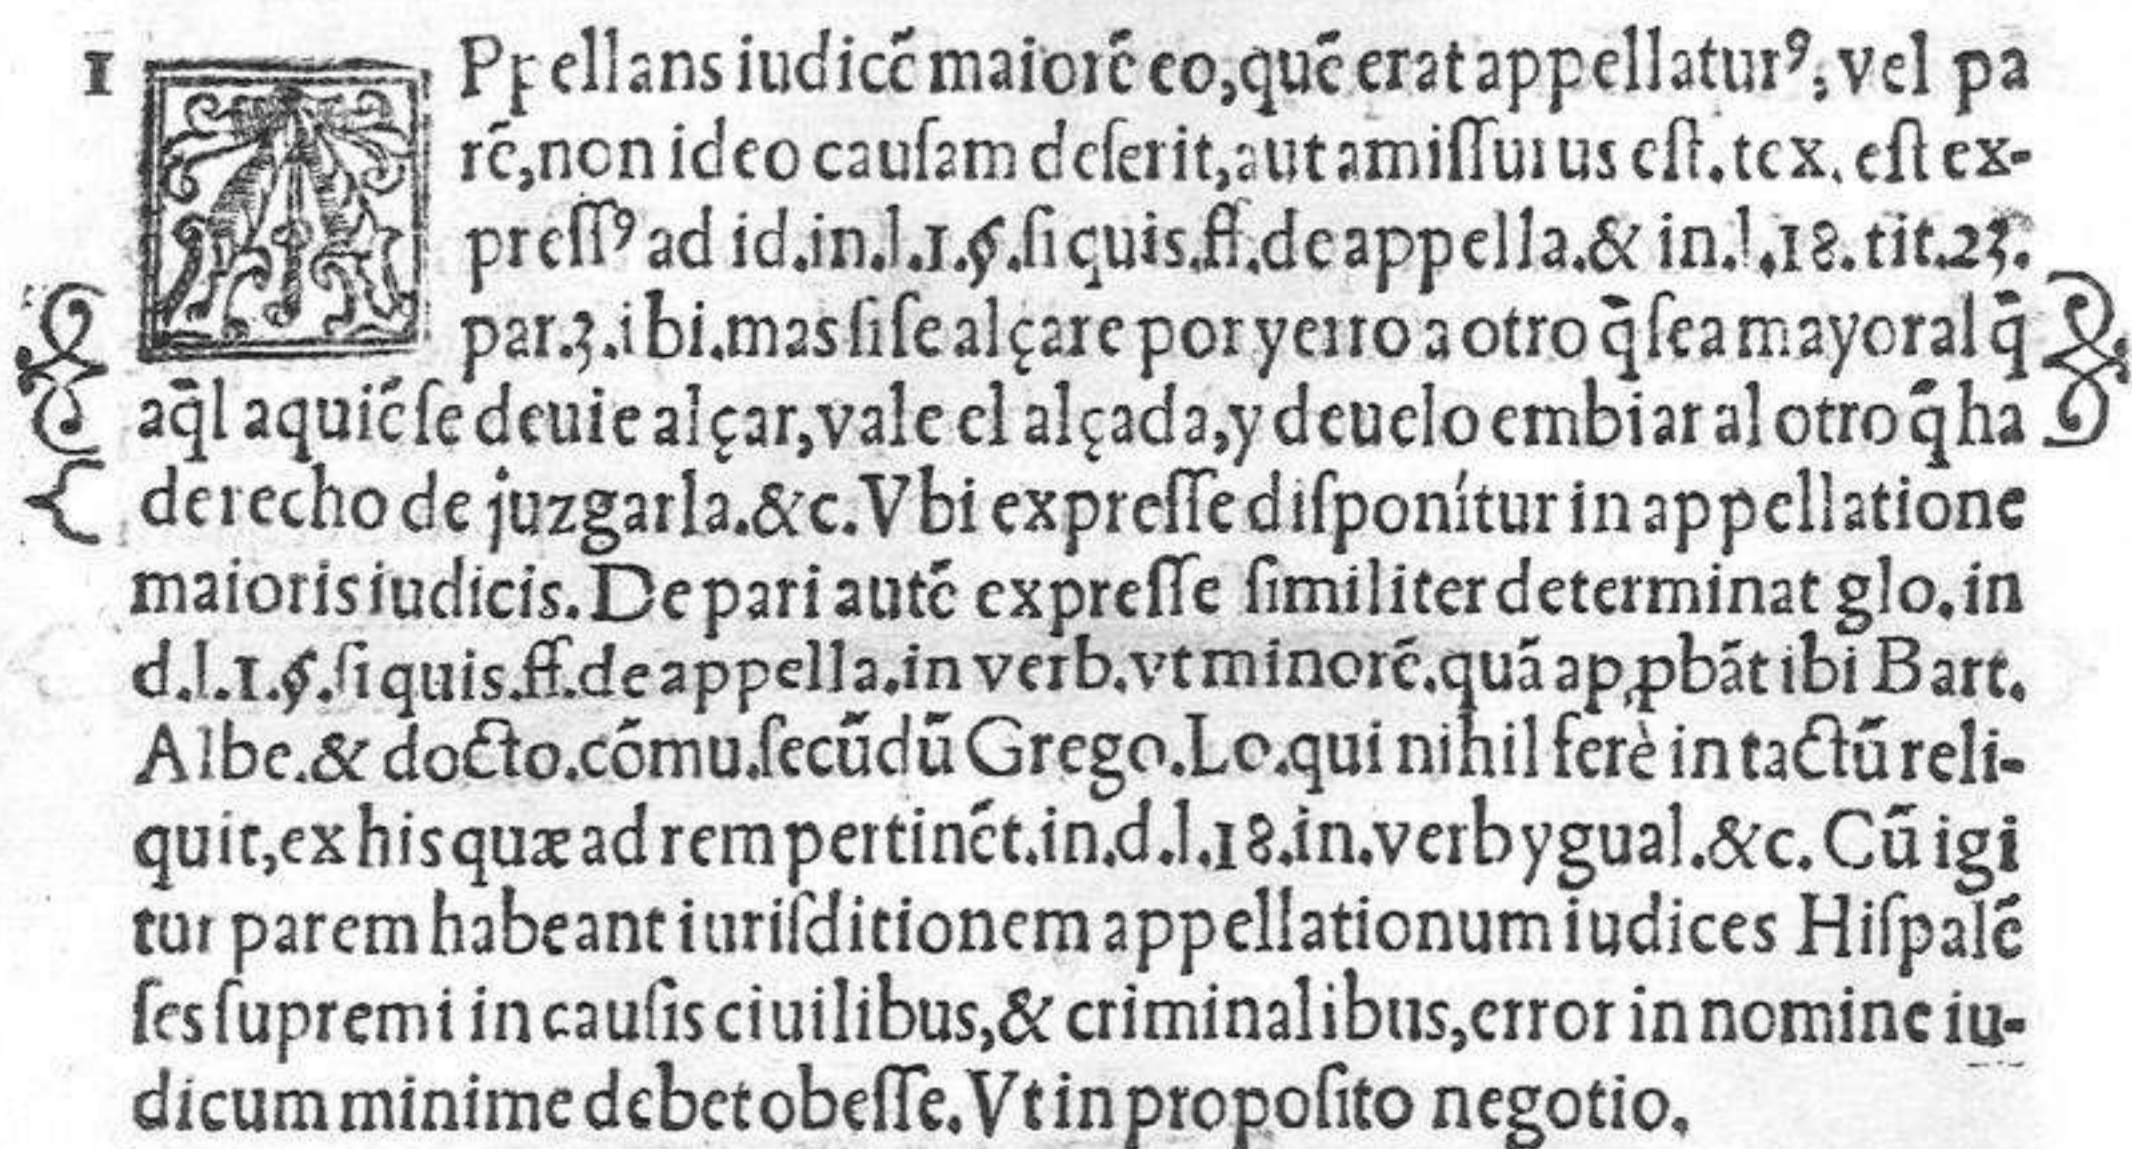 1 APpellans iudicẽ maiorẽ eo,quẽ erat appellaturꝰ; vel pa
rẽ,non ideo cauſam deſerit,aut amiſſurus eſt.tex. eſt ex-
preſſꝰ ad id.in.l.1.§.ſi quis.ff.de appella.& in.l.18.tit.23.
par.3.ibi.mas ſi ſe alçare por yerro a otro q̃ ſea mayoral q̃
aq̃l a quiẽ ſe deuie alçar,vale el alçada,y deuelo embiar al otro q̃ ha
derecho de juzgarla.&c.Vbi expreſſe diſponítur in appellatione
maioris iudicis. De pari autẽ expreſſe ſimiliter determinat glo.in
d.l.1.§.ſi quis.ff.de appella.in verb.vt minorẽ.quã apꝓbãt ibi Bart.
Albe.& docto.cõmu.ſecũdũ Grego.Lo.qui nihil ferè intactũ reli-
quit,ex his quæ ad rem pertinẽt.in.d.l.18.in.verb ygual.&c. Cũ igi
tur parem habeant iuriſditionem appellationum iudices Hiſpalẽ
ſes ſupremi in cauſis ciuilibus,& criminalibus,error in nomine iu-
dicum minime debet obeſſe.Vt in propoſito negotio.